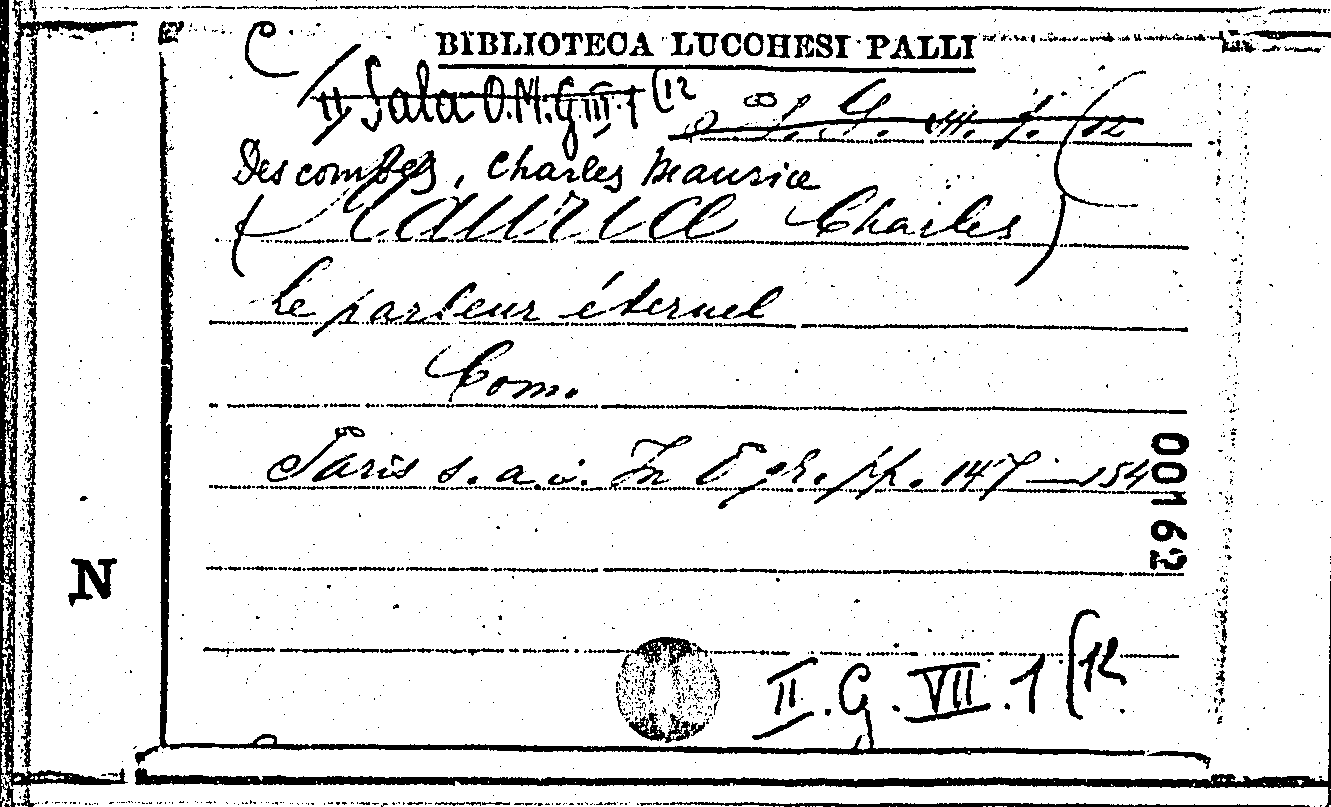 C
BIBLIOTECA LUCCHESI PALLI
II Sala O.M.G III 1 (12
Descombes, Charles Maurice
(Maurice Charles)
Le parleur éternel
Com.
Paris s. a. i. In 8 gr. pp. 147—154
00162
N
II. G. VII. 1 (12